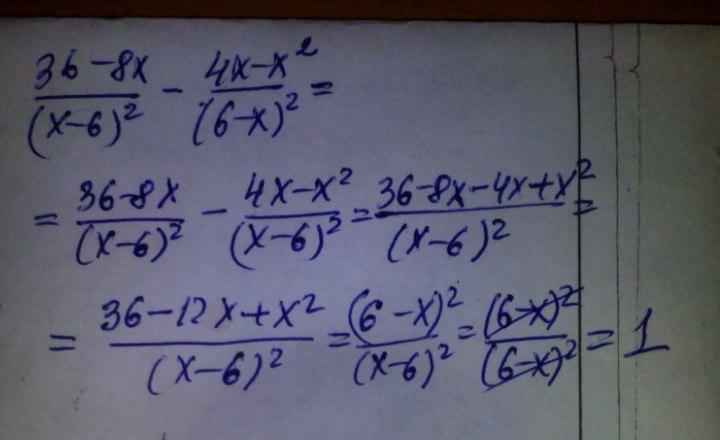 (36-8x)/(x-6)² - (4x-x²)/(6-x)² =
= (36-8x)/(x-6)² - (4x-x²)/(x-6)² = (36-8x-4x+x²)/(x-6)² =
= (36-12x+x²)/(x-6)² = (6-x)²/(x-6)² = (6-x)²/(6-x)² = 1